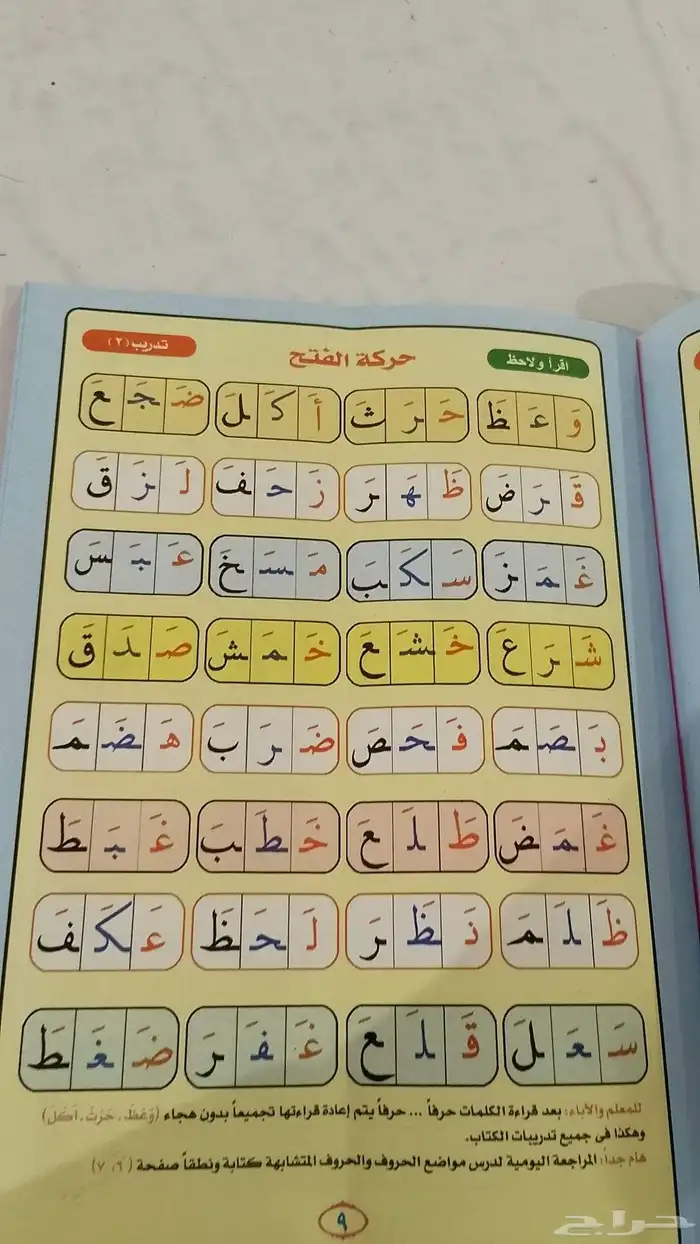 اقرأ ولاحظ حركة الفتح تدريب (٢)
وَ عَ ظَ حَ رَ ثَ أَ كَ لَ ضَ جَ عَ
قَ رَ ضَ ظَ هَ رَ زَ حَ فَ لَ زَ قَ
غَ مَ زَ سَ كَ بَ مَ سَ خَ عَ بَ سَ
شَ رَ عَ خَ شَ عَ خَ مَ شَ صَ دَ قَ
بَ صَ مَ فَ حَ صَ ضَ رَ بَ هَ ضَ مَ
غَ مَ ضَ طَ لَ عَ خَ طَ بَ غَ بَ طَ
ظَ لَ مَ نَ ظَ رَ لَ حَ ظَ عَ كَ فَ
سَ عَ لَ قَ لَ عَ غَ فَ رَ ضَ غَ طَ
للمعلم والآباء: بعد قراءة الكلمات حرفاً ... حرفاً يتم إعادة قراءتها تجميعاً بدون هجاء (وَعَظَ، حَرَثَ، أَكَلَ)
وهكذا فى جميع تدريبات الكتاب.
هام جداً: المراجعة اليومية لدرس مواضع الحروف والحروف المتشابهة كتابة ونطقاً صفحة (٦، ٧)
٩
حراج